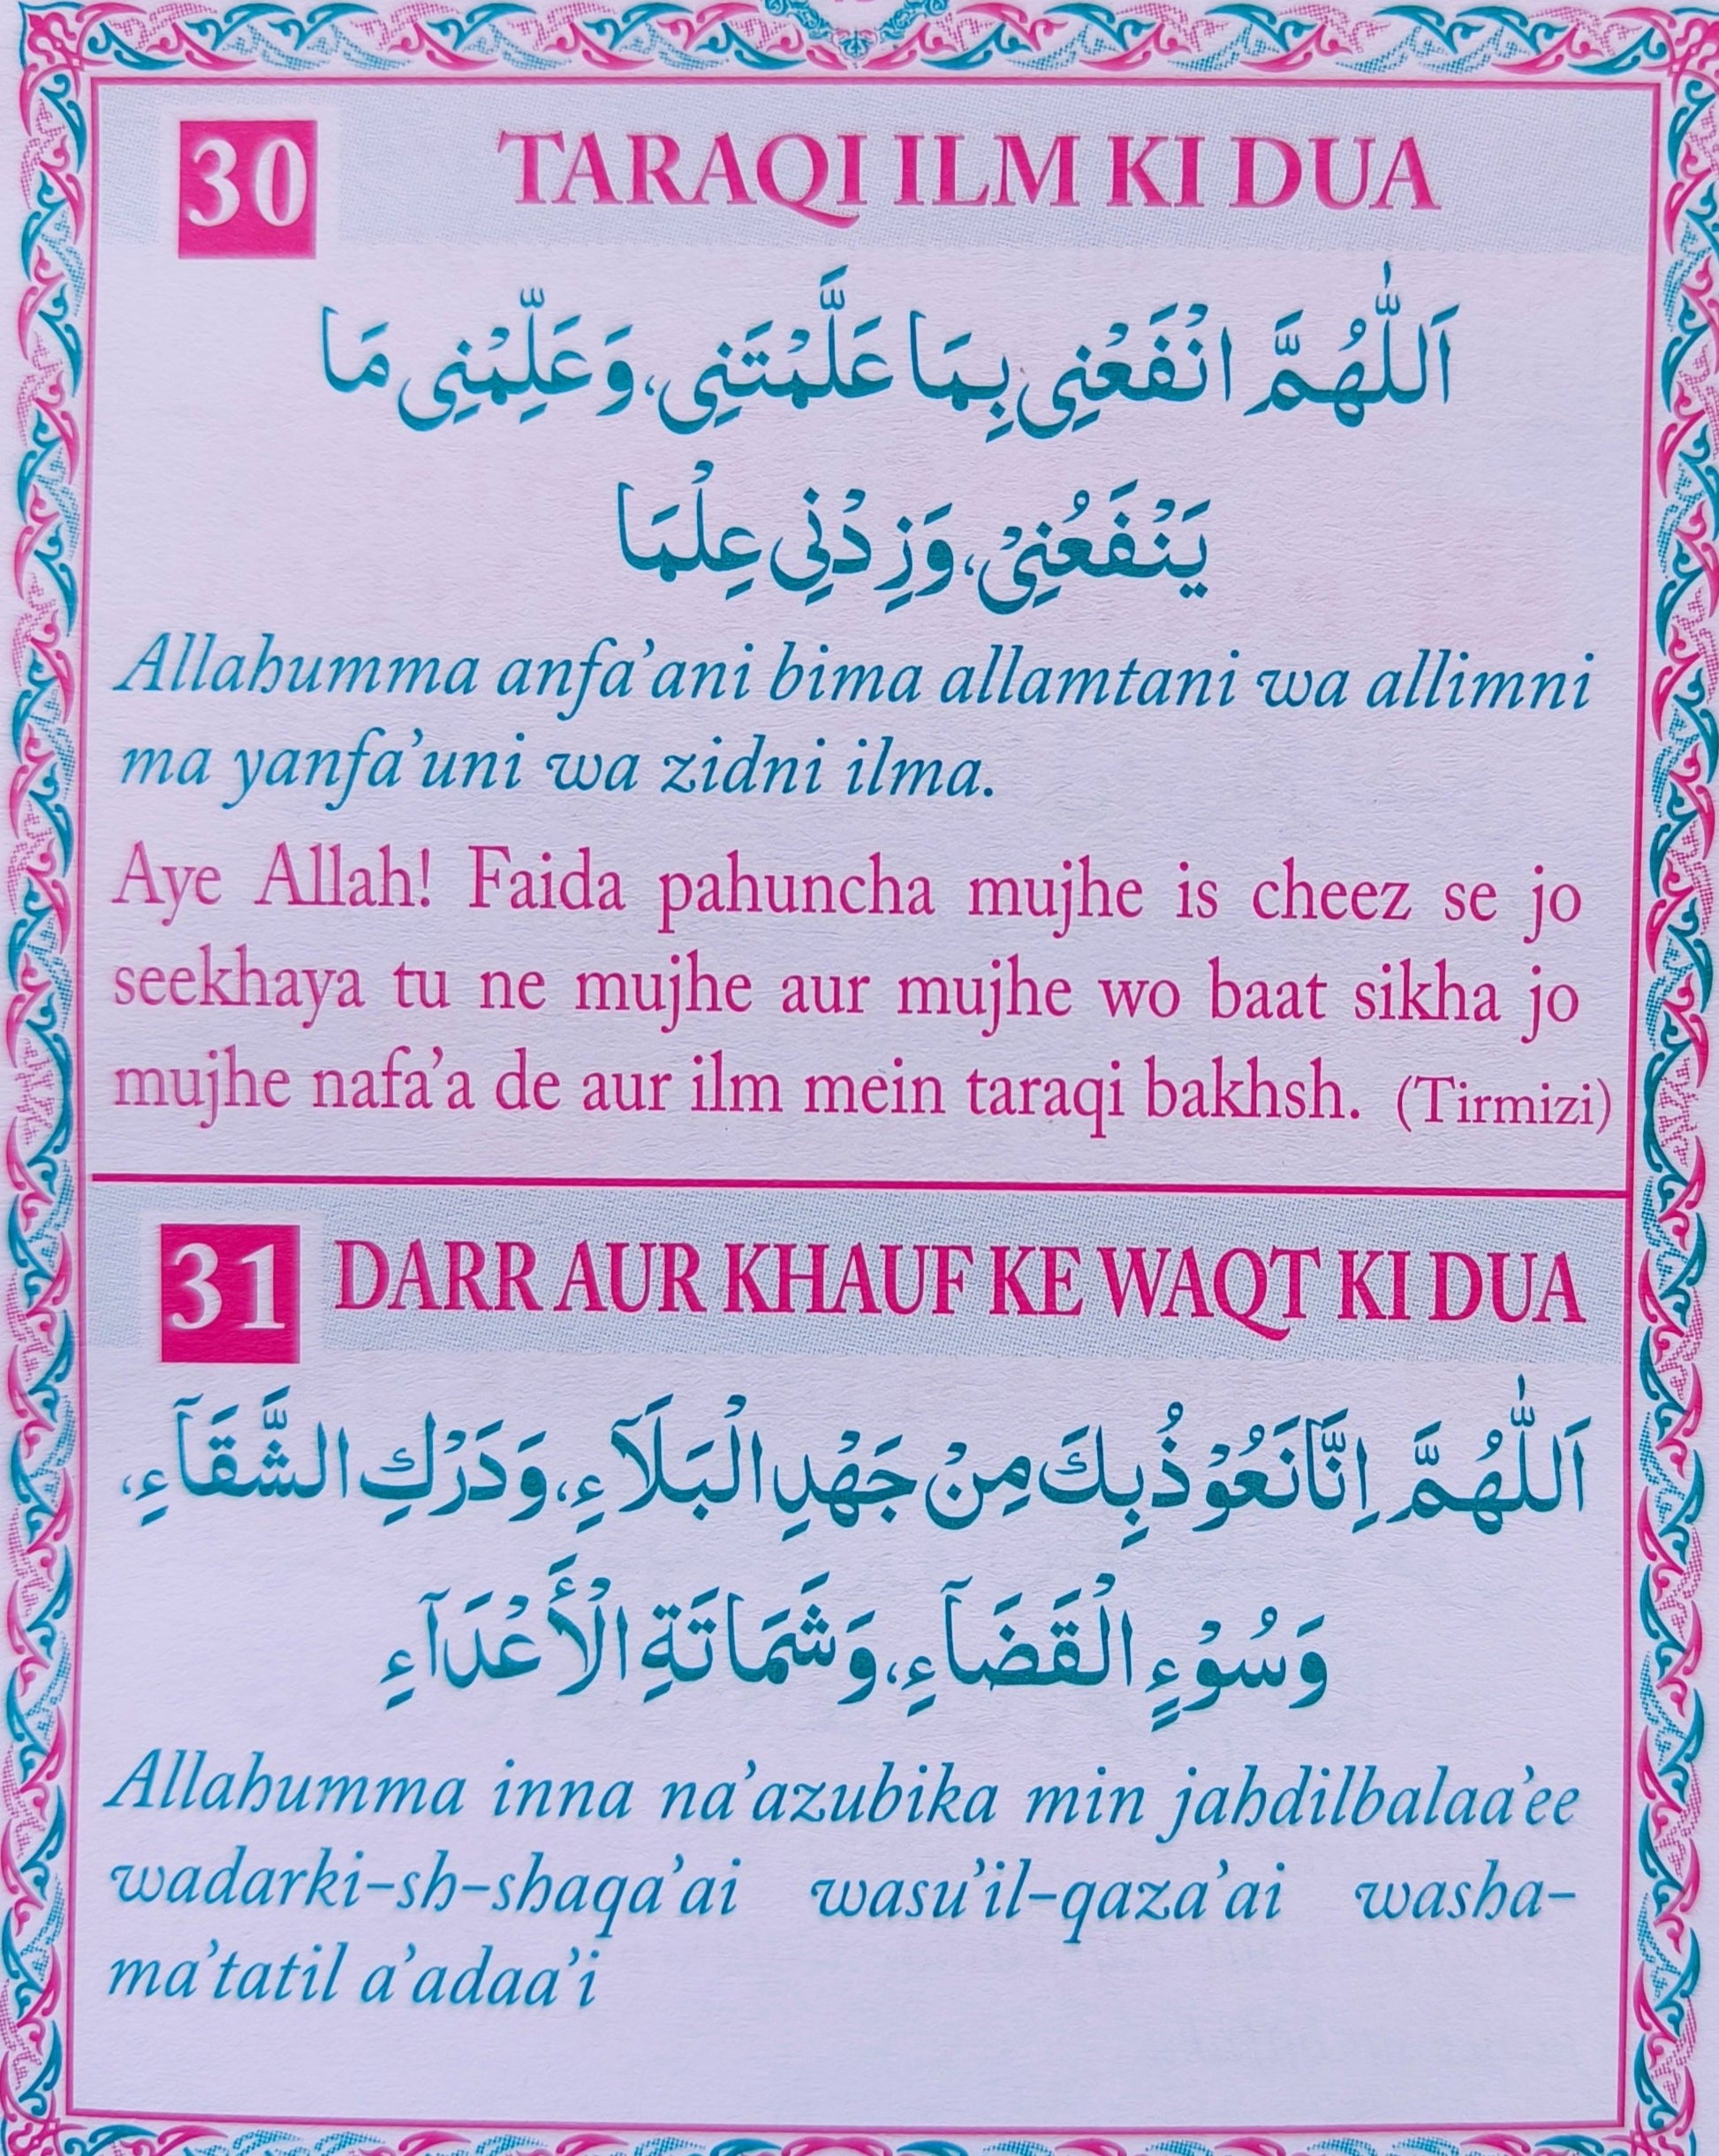 30 TARAQI ILM KI DUA
اَللّٰهُمَّ انْفَعْنِى بِمَا عَلَّمْتَنِى، وَعَلِّمْنِى مَا
يَنْفَعُنِىْ، وَزِدْنِي عِلْمَا
Allahumma anfa’ani bima allamtani wa allimni
ma yanfa’uni wa zidni ilma.
Aye Allah! Faida pahuncha mujhe is cheez se jo
seekhaya tu ne mujhe aur mujhe wo baat sikha jo
mujhe nafa’a de aur ilm mein taraqi bakhsh. (Tirmizi)
31 DARR AUR KHAUF KE WAQT KI DUA
اَللّٰهُمَّ اِنَّانَعُوْذُبِكَ مِنْ جَهْدِ الْبَلَآءِ، وَدَرْكِ الشَّقَآءِ،
وَسُوْءٍ الْقَضَآءِ، وَشَمَاتَةِ الْأَعْدَآءِ
Allahumma inna na’azubika min jahdilbalaa’ee
wadarki-sh-shaqa’ai wasu’il-qaza’ai washa-
ma’tatil a’adaa’i